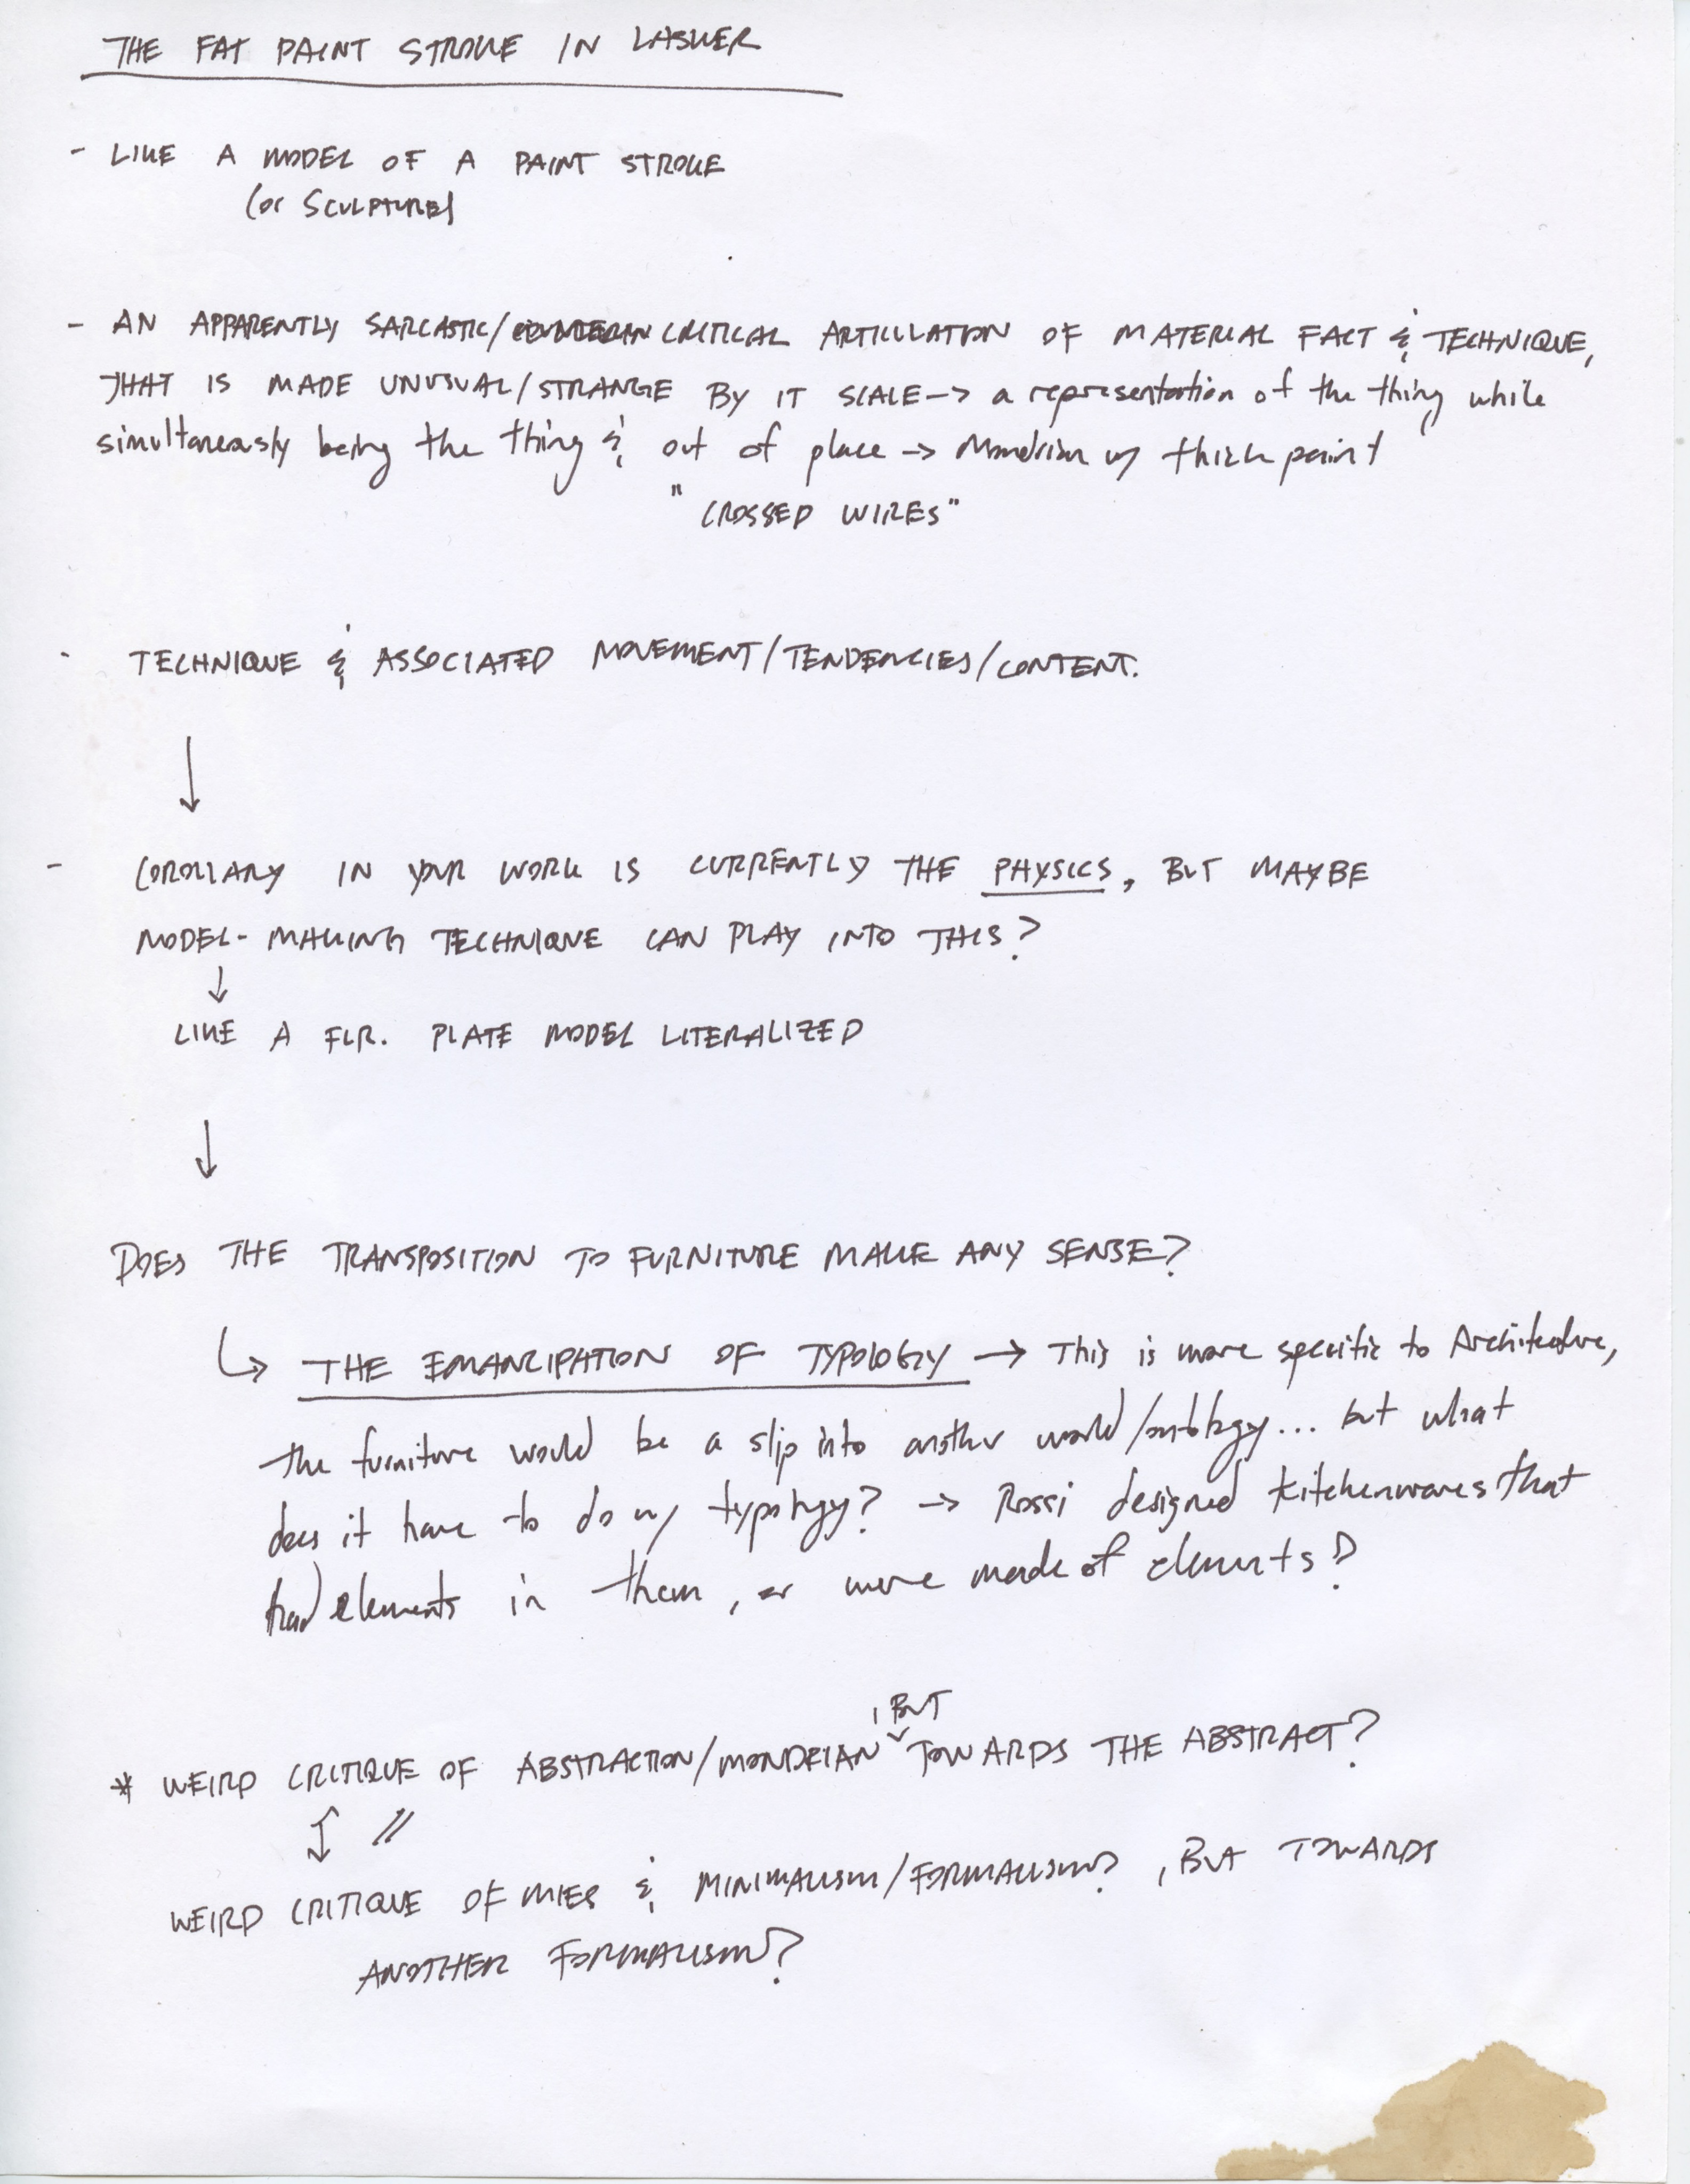 THE FAT PAINT STROKE IN LASKER
- LIKE A MODEL OF A PAINT STROKE
(or SCULPTURE)
- AN APPARENTLY SARCASTIC/CRITICAL ARTICULATION OF MATERIAL FACT & TECHNIQUE,
THAT IS MADE UNUSUAL/STRANGE BY IT SCALE → a representation of the thing while
simultaneously being the thing & out of place → Mondrian w/ thick paint
"CROSSED WIRES"
- TECHNIQUE & ASSOCIATED MOVEMENT/TENDENCIES/CONTENT.
↓
- COROLLARY IN YOUR WORK IS CURRENTLY THE PHYSICS, BUT MAYBE
MODEL-MAKING TECHNIQUE CAN PLAY INTO THIS?
↓
LIKE A FLR. PLATE MODEL LITERALIZED
↓
DOES THE TRANSPOSITION TO FURNITURE MAKE ANY SENSE?
↳ THE EMANCIPATION OF TYPOLOGY → This is more specific to Architecture,
the furniture would be a slip into another world/ontology... but what
does it have to do w/ typology? → Rossi designed kitchenwares that
had elements in them, or were made of elements?
* WEIRD CRITIQUE OF ABSTRACTION/MONDRIAN, BUT TOWARDS THE ABSTRACT?
↕ //
WEIRD CRITIQUE OF MIES & MINIMALISM/FORMALISM?, BUT TOWARDS
ANOTHER FORMALISM?